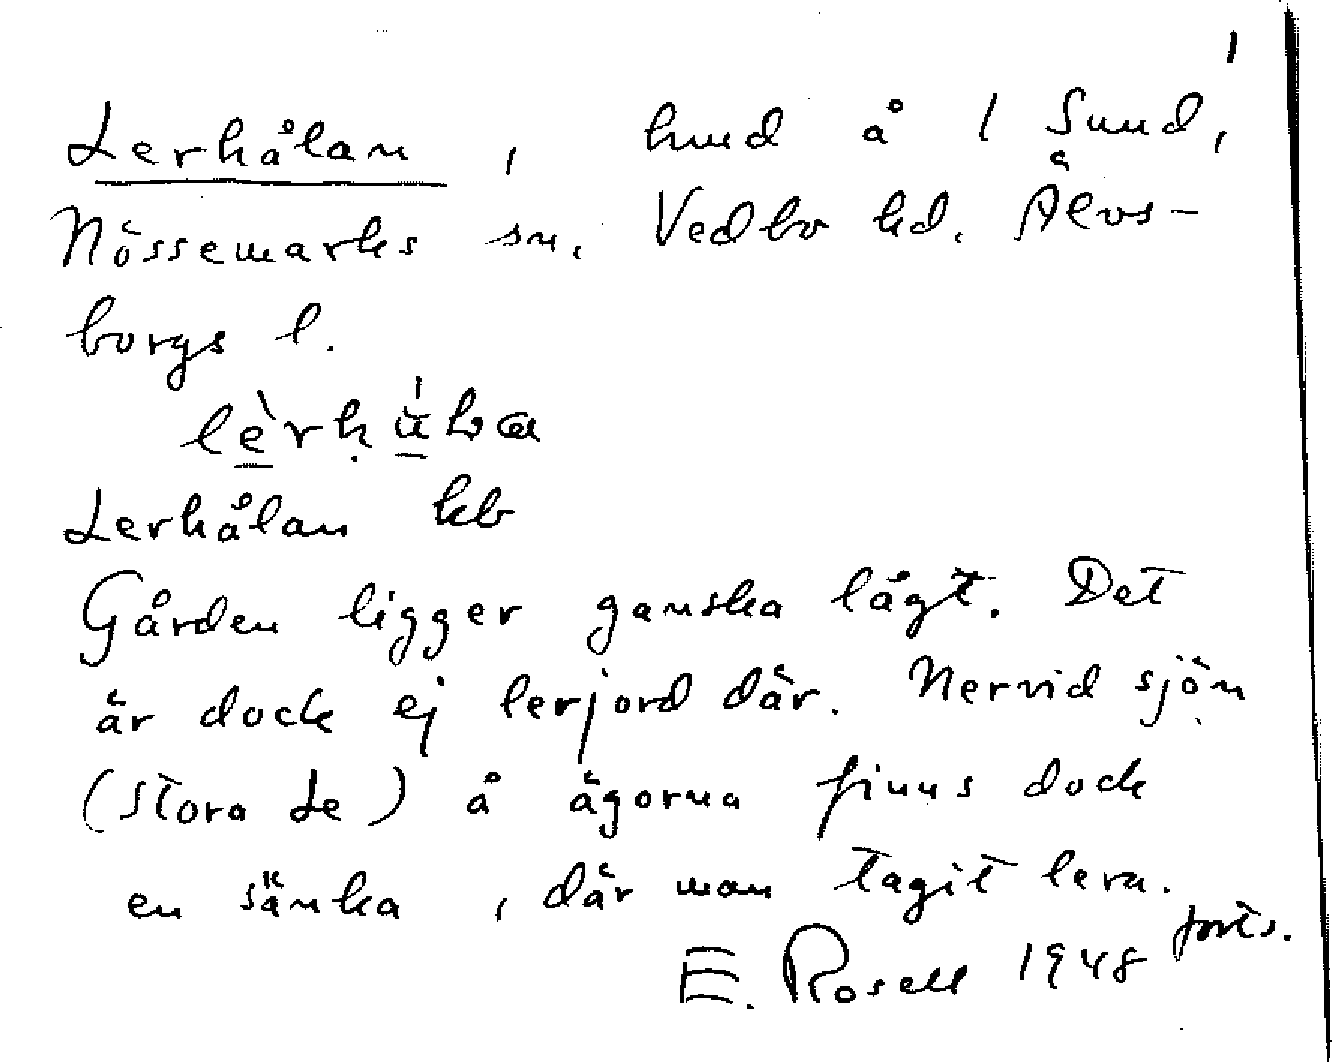 1
Lerhålan, hmd å 1 Sund,
Nössemarks sn. Vedbo hd. Älvs-
borgs l.
Lerhålan kb
Gården ligger ganska lågt. Det
är dock ej lerjord där. Nervid sjön
(Stora Le) å ägorna finns dock
en sänka, där man tagit lera.
forts.
E. Rosell 1948